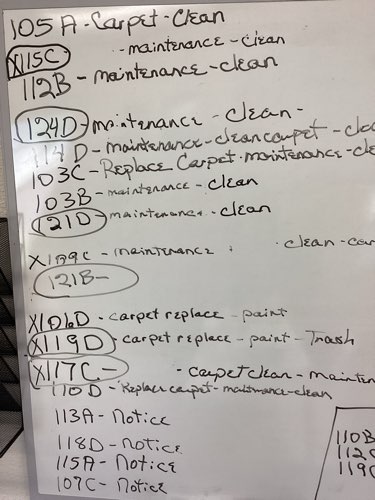 105A - Carpet - Clean
X115C - maintenance - clean
112B - maintenance - clean
124D - maintenance - clean -
114D - maintenance - clean carpet - cle
103C - Replace Carpet - maintenance - cle
103B - maintenance - clean
121D - maintenance - clean
X109C - maintenance clean - car
121B -
X101D - carpet replace - paint
X119D - carpet replace - paint - Trash
X117C - - carpet clean - mainten
110D - Replace carpet - maintenance - clean
113A - Notice
118D - Notice
115A - Notice
107C - Notice
110B
112C
119C